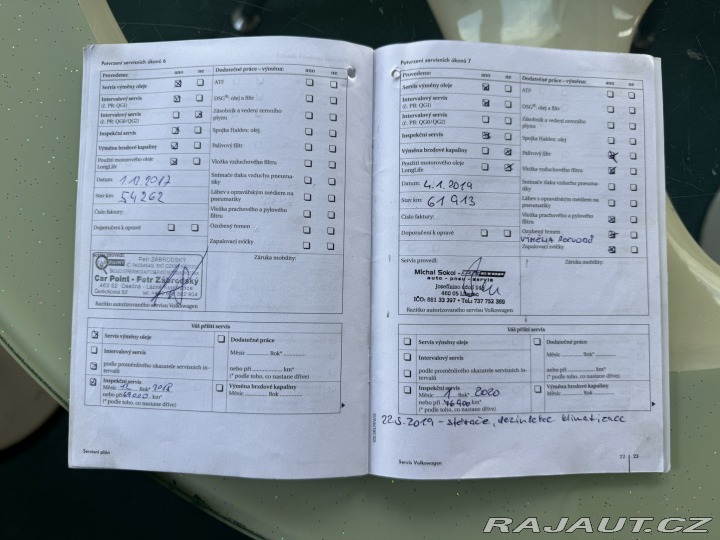 Potvrzení servisních úkonů 6
Provedeno: ano ne
Servis výměny oleje
Intervalový servis
(č. PR: QG1)
Intervalový servis
(č. PR: QG0/QG2)
Inspekční servis
Výměna brzdové kapaliny
Použití motorového oleje
LongLife
Datum: 1.12.2017
Stav km: 54262
Číslo faktury:
Doporučení k opravě
Dodatečné práce – výměna: ano ne
ATF
DSG®: olej a filtr
Zásobník a vedení zemního
plynu
Spojka Haldex: olej
Palivový filtr
Vložka vzduchového filtru
Snímače tlaku vzduchu pneuma-
tiky
Láhev s opravárenským médiem na
pneumatiky
Vložka prachového a pylového
filtru
Ozubený řemen
Zapalovací svíčky
Servis provedl:
Petr ZÁBRODSKÝ
Car Point - Petr Zábrodský
463 52 Osečná
Razítko autorizovaného servisu Volkswagen
Záruka mobility:
Váš příští servis
Servis výměny oleje
Intervalový servis
podle proměnlivého ukazatele servisních in-
tervalů
Inspekční servis
Měsíc 12 Rok* 2018
nebo při 69000 km*
(* podle toho, co nastane dříve)
Dodatečné práce
Měsíc Rok*
nebo při km*
(* podle toho, co nastane dříve)
Výměna brzdové kapaliny
Měsíc Rok
Servisní plán
Potvrzení servisních úkonů 7
Provedeno: ano ne
Servis výměny oleje
Intervalový servis
(č. PR: QG1)
Intervalový servis
(č. PR: QG0/QG2)
Inspekční servis
Výměna brzdové kapaliny
Použití motorového oleje
LongLife
Datum: 4.1.2019
Stav km: 61913
Číslo faktury:
Doporučení k opravě
Dodatečné práce – výměna: ano ne
ATF
DSG®: olej a filtr
Zásobník a vedení zemního
plynu
Spojka Haldex: olej
Palivový filtr
Vložka vzduchového filtru
Snímače tlaku vzduchu pneuma-
tiky
Láhev s opravárenským médiem na
pneumatiky
Vložka prachového a pylového
filtru
Ozubený řemen
VÝMĚNA ROZVODŮ
Zapalovací svíčky
Servis provedl:
Michal Sokol -
auto - pneu - servis
460 05 Liberec
IČO: 881 33 397 • Tel.: 737 752 389
Razítko autorizovaného servisu Volkswagen
Záruka mobility:
Váš příští servis
Servis výměny oleje
Intervalový servis
podle proměnlivého ukazatele servisních in-
tervalů
Inspekční servis
Měsíc 1 Rok* 2020
nebo při 76900 km*
(* podle toho, co nastane dříve)
Dodatečné práce
Měsíc Rok*
nebo při km*
(* podle toho, co nastane dříve)
Výměna brzdové kapaliny
Měsíc Rok
22.5.2019 - stěrače, dezinfekce klimatizace
Servis Volkswagen
22 23
RAJAUT.CZ